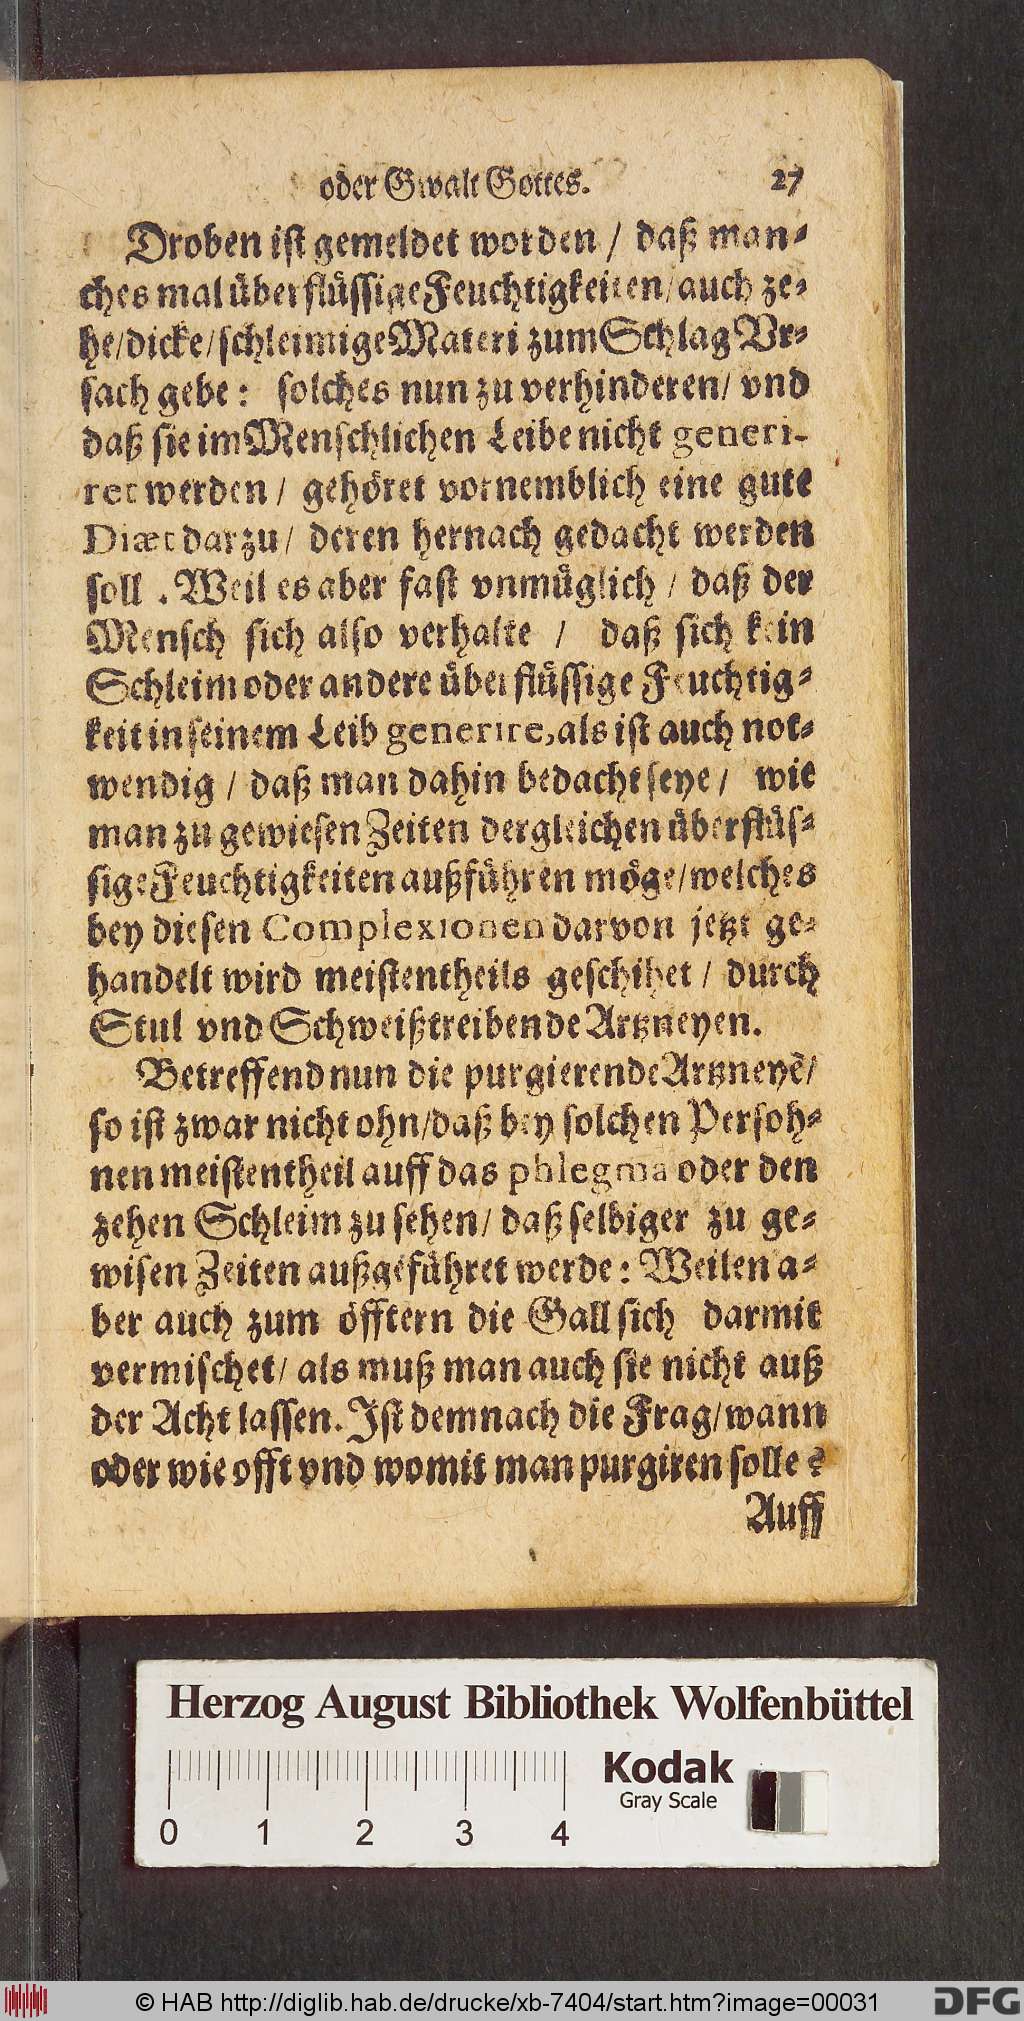 oder Gwalt Gottes. 27
Droben ist gemeldet worden / daß man-
ches mal überflüssige Feuchtigkeiten / auch ze-
he / dicke / schleimige Materi zum Schlag Vr-
sach gebe: solches nun zu verhinderen / vnd
daß sie im Menschlichen Leibe nicht generi-
ret werden / gehöret vornemblich eine gute
Diæt darzu / deren hernach gedacht werden
soll . Weil es aber fast vnmüglich / daß der
Mensch sich also verhalte / daß sich kein
Schleim oder andere überflüssige Feuchtig-
keit in seinem Leib generire, als ist auch not-
wendig / daß man dahin bedacht seye / wie
man zu gewiesen Zeiten dergleichen überflüs-
sige Feuchtigkeiten außführen möge / welches
bey diesen Complexionen darvon jetzt ge-
handelt wird meistentheils geschihet / durch
Stul vnd Schweißtreibende Artzneyen.
Betreffend nun die purgierende Artzneyẽ /
so ist zwar nicht ohn / daß bey solchen Persoh-
nen meistentheil auff das phlegma oder den
zehen Schleim zu sehen / daß selbiger zu ge-
wisen Zeiten außgeführet werde: Weilen a-
ber auch zum öfftern die Gall sich darmit
vermischet / als muß man auch sie nicht auß
der Acht lassen. Ist demnach die Frag / wann
oder wie offt vnd womit man purgiren solle?
Auff
Herzog August Bibliothek Wolfenbüttel
Kodak
Gray Scale
0 1 2 3 4
© HAB http://diglib.hab.de/drucke/xb-7404/start.htm?image=00031
DFG